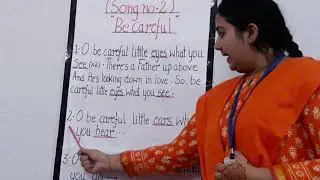 (Song no:2)
"Be Careful"
1:O be careful little eyes what you
See (x2). There's a Father up above
And He's looking down in love. So, be
careful little eyes what you see.
2:O be careful little ears wh
you hear...
3:O
you